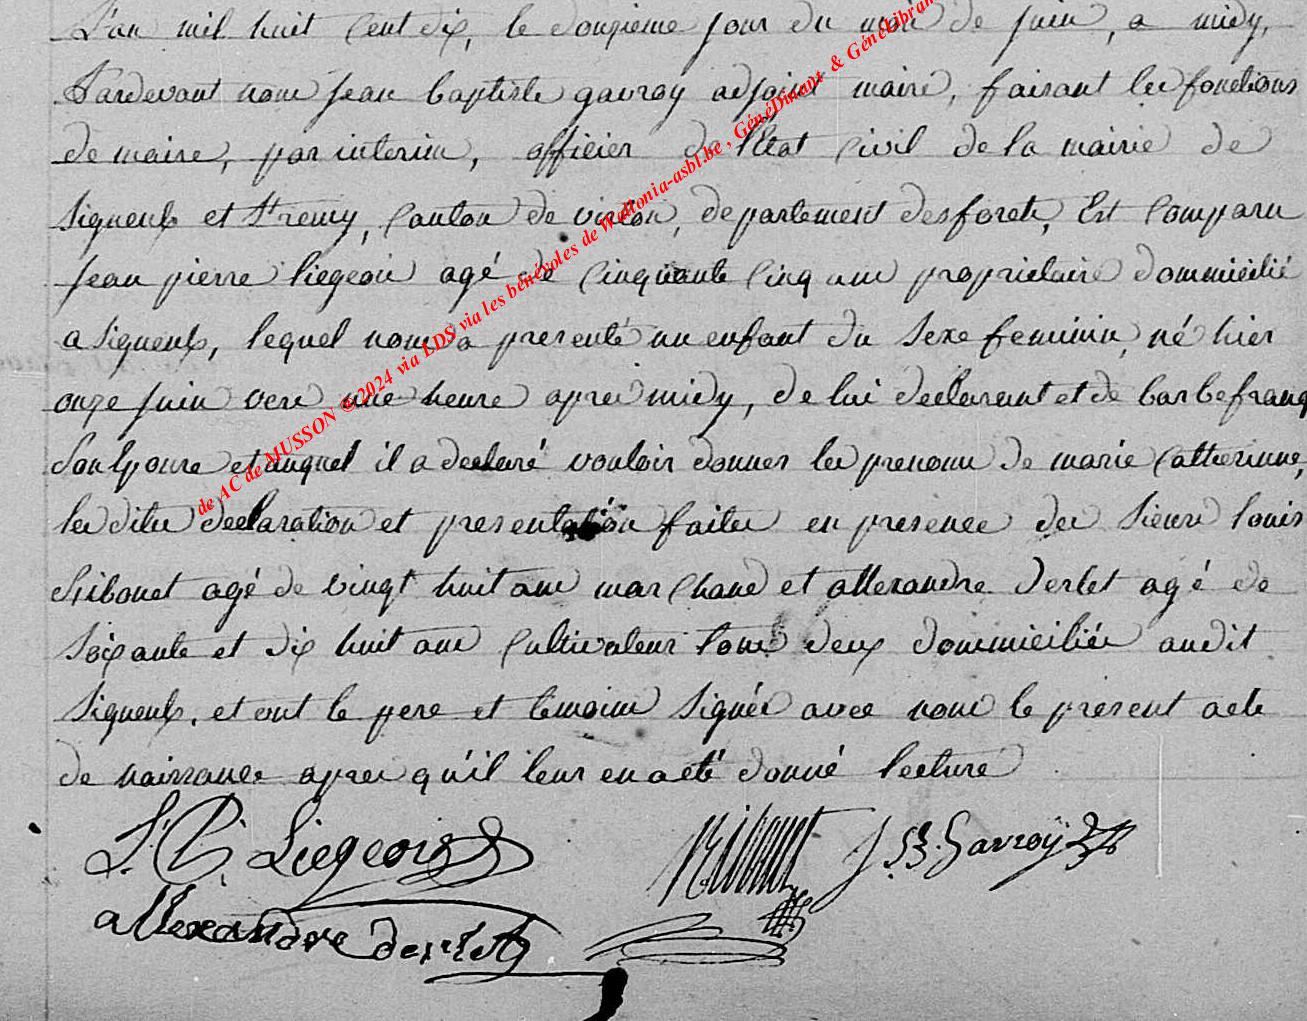 L'an mil huit Cent dix, le douzieme jour du mois de juin, a midy,
Pardevant nous jean baptiste gavroy adjoint maire, faisant les fonctions
de maire, par interim, officier de l'Etat Civil de la mairie de
Signeulx et St remy, Canton de virton, departement desforets, Est Comparu
jean pierre liegeois agé de Cinquante Cinq ans proprietaire dommicilié
a Signeulx, lequel nous a presenté un enfant du Sexe feminin, né hier
onze juin vers une heure apres midy, de lui declarant et de barbe franç
Son Epouse et auquel il a declaré vouloir donner les prenoms de marie Catterinne,
les dites declaration et presentation faites en presence des Sieurs louis
Ribonet agé de vingt huit ans marChand et allexandre derlet agé de
Soixante et dix huit ans Cultivateur tous deux dommiciliés audit
Signeulx, et ont le pere et temoins Signés avec nous le present acte
de naissance apres qu'il leur en a eté donné lecture
J. P. Liegeois
J. B. Gavroÿ
allexandre derlet
de AC de MUSSON ©2024 via LDS via les bénévoles de Wallonia-asbl.be, GénéDinant & GénéLibran